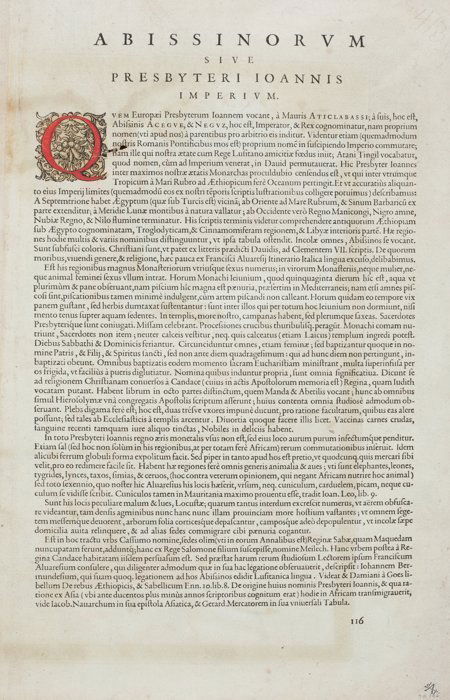 ABISSINORVM
SIVE
PRESBYTERI IOANNIS
IMPERIVM.
QVEM Europæi Presbyterum Ioannem vocant, à Mauris ATICLABASSI; à suis, hoc est,
Abisinis ACEGVE, & NEGVZ, hoc est, Imperator, & Rex cognominatur, nam proprium
nomen (vti apud nos) à parentibus pro arbitrio eis inditur. Videntur etiam (quemadmodum
nostris Romanis Pontificibus mos est) proprium nomē in suscipiendo Imperio commutare;
nam ille qui nostra ætate cum Rege Lusitano amicitiæ fœdus iniit, Atani Tingil vocabatur,
quod nomen, cùm ad Imperium venerat, in Dauid permutauerat. Hic Presbyter Ioannes
inter maximos nostræ ætatis Monarchas proculdubio censendus est, vt qui inter vtrumque
Tropicum à Mari Rubro ad Æthiopicum ferè Oceanum pertingit. Et vt accuratiùs aliquan-
to eius Imperij limites (quemadmodū eos ex nostri tēporis scriptis lustrationibus colligere potuimus) describamus:
A Septemtrione habet Ægyptum (quæ sub Turcis est) vicinā; ab Oriente ad Mare Rubrum, & Sinum Barbaricū ex
parte extenditur, à Meridie Lunæ montibus à natura vallatur; ab Occidente verò Regno Manicongi, Nigro amne,
Nubiæ Regno, & Nilo flumine terminatur. His scriptis terminis videtur comprehendere antiquorum Æthiopiam
sub Ægypto cognominatam, Troglodyticam, & Cinnamomiferam regionem, & Labyæ interioris partē. Hæ regio-
nes hodie multis & variis nominibus distinguuntur, vt ipsa tabula ostendit. Incolæ omnes, Abisinos se vocant.
Sunt subfusci coloris. Christiani sunt, vt patet ex litteris prædicti Dauidis, ad Clementem VII. scriptis. De quorum
moribus, viuendi genere, & religione, hæc pauca ex Francisci Aluaresij Itinerario Italica lingua excuso, delibauimus.
Est his regionibus magnus Monasteriorum vtriusque sexus numerus; in virorum Monasteriis, neque mulier, ne-
que animal femineī sexus vllum intrat. Horum Monachi ieiunium, quod quinquaginta dierum hîc est, aqua vt
plurimùm & pane obseruant, nam piscium hîc magna est pænuria, præsertim in Mediterraneis; nam etsi amnes pis-
cosi sint, piscationibus tamen minimè indulgent, cùm artem piscandi non calleant. Horum quidam eo tempore vix
panem gustant, sed herbis dumtaxat sustentantur: sunt inter illos qui per totum hoc Ieiunium non dormiunt, nisi
mento tenus super aquam sedentes. In templis, more nostro, campanas habent, sed plerumque saxeas. Sacerdotes
Presbyterique sunt coniugati. Missam celebrant. Processiones crucibus thuribulisq́; peragūt. Monachi comam nu-
triunt, Sacerdotes non item; neuter calceis vestitur, neq́; quis calceatus (etiam Laicus) templum ingredi potest.
Diebus Sabbathi & Dominicis feriantur. Circunciduntur omnes, etiam feminæ; sed baptizantur quoque in no-
mine Patris, & Filij, & Spiritus sancti, sed non ante diem quadragesimum: qui ad hunc diem non pertingunt, in-
baptizati obeunt. Omnibus baptizatis eodem momento sacram Eucharistiam ministrant, multa superinfusa per
os frigida, vt faciliùs à pueris diglutiatur. Nomina quibus induntur propria, sunt omnia significatiua. Dicunt se
ad religionem Christianam conuersos à Candace (cuius in actis Apostolorum memoria est) Regina, quam Iudith
vocatam putant. Habent librum in octo partes distinctum, quem Manda & Abetilis vocant; hunc ab omnibus
simul Hierosolymæ vnà congregatis Apostolis scriptum afferunt; huius contenta omnia studiosè admodum ob-
seruant. Plebs digama ferè est; hoc est, duas trésve vxores impunè ducunt, pro ratione facultatum, quibus eas alere
possunt; sed tales ab Ecclesiasticis à templis arcentur. Diuortia quoque facere illis licet. Vaccinas carnes crudas,
sanguine recenti tamquam iure aliquo tinctas, Nobiles in delitiis habent.
In toto Presbyteri Ioannis regno æris monetalis vsus non est, sed eius loco aurum purum infectumq́ue penditur.
Etiam sal (sed hoc non solùm in his regionibus, at per totam ferè Africam) rerum commutationibus inseruit. Idem
alicubi ferrum globuli forma expolitum facit. Sed piper in tanto apud hos est pretio, vt quodcunq́; quis mercari sibi
velit, pro eo redimere facilè sit. Habent hæ regiones ferè omnis generis animalia & aues; vti sunt elephantes, leones,
tygrides, lynces, taxos, simias, & ceruos, (hoc contra veterum opinionem, qui negant Africam nutrire hoc animal)
sed toto sexennio, quo noster hic Aluaresius his locis hæserit, vrsum, neq́; cuniculum, carduelem, picam, neque cu-
culum se vidisse scribit. Cuniculos tamen in Mauritania maximo prouentu esse, tradit Ioan. Leo, lib. 9.
Sunt his locis peculiare malum & lues, Locustæ; quarum tantus interdum excrescit numerus, vt aërem obfusca-
re videantur, tam densis agminibus nunc hanc nunc illam prouinciam more hostium vastantes; vt omnem sege-
tem messemque deuorent, arborum folia corticesque depascantur, camposque adeò depopulentur, vt incolæ sæpe
domicilia auita relinquere, & ad alias sedes commigrare cibi pænuria cogantur.
Est in hoc tractu vrbs Cassumo nomine, sedes olim (vti in eorum Annalibus est) Reginæ Sabæ, quam Maquedam
nuncupatam ferunt, adduntq́; hanc ex Rege Salomone filium suscepisse, nomine Meilech. Hanc vrbem postea à Re-
gina Candace habitatam iisdem persuasum est. Sed præstat harum rerum studiosum Lectorem ipsum Franciscum
Aluaresium consulere, qui diligenter admodum quæ in sua hac legatione obseruauerit, descripsit: Iohannem Ber-
mundesium, qui suam quoq. legationem ad hos Abissinos edidit Lusitanica lingua. Videat & Damiani à Goes li-
bellum De rebus Æthiopicis, & Sabellicum Enn. 10. lib. 8. De origine huius nominis Presbyteri Ioannis, & qua ra-
tione ex Asia (vbi ante ducentos plus minùs annos scriptionibus cognitum erat) hodie in Africam transmigrauerit,
vide Iacob. Nauarchum in sua epistola Asiatica, & Gerard. Mercatorem in sua vniuersali Tabula.
116